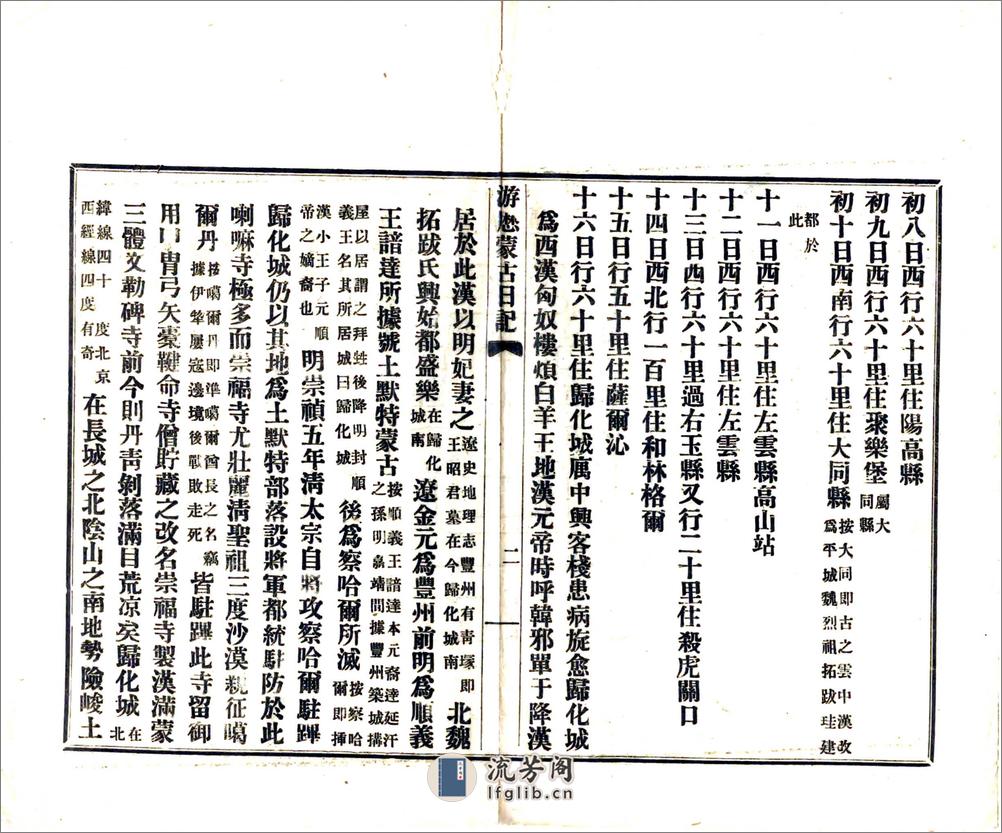 初八日西行六十里住陽高縣
初九日西行六十里住聚樂堡屬大同縣
初十日西南行六十里住大同縣按大同即古之雲中漢改爲平城魏烈祖拓跋珪建
都於此
十一日西行六十里住左雲縣高山站
十二日西行六十里住左雲縣
十三日西行六十里過右玉縣又行二十里住殺虎關口
十四日西北行一百里住和林格爾
十五日行五十里住薩爾沁
十六日行六十里住歸化城寓中興客棧患病旋愈歸化城
爲西漢匈奴樓煩白羊王地漢元帝時呼韓邪單于降漢
游懋蒙古日記
二
居於此漢以明妃妻之遼史地理志豐州有青塚即王昭君墓在今歸化城南北魏
拓跋氏興始都盛樂在歸化城南遼金元爲豐州前明爲順義
王諳達所據號土默特蒙古按順義王諳達本元裔達延汗之孫明嘉靖間據豐州築城搆
屋以居謂之拜甡後降明封順義王名其所居城曰歸化城後爲察哈爾所滅按察哈爾即揷
漢小王子元順帝之嫡裔也明崇禎五年清太宗自將攻察哈爾駐蹕
歸化城仍以其地爲土默特部落設將軍都統駐防於此
喇嘛寺極多而崇福寺尤壯麗清聖祖三度沙漠親征噶
爾丹按噶爾丹即準噶爾酋長之名竊據伊犂屢寇邊境後戰敗走死皆駐蹕此寺留御
用甲冑弓矢櫜鞬命寺僧貯藏之改名崇福寺製漢滿蒙
三體文勒碑寺前今則丹青剝落滿目荒凉矣歸化城在北
緯線四十度北京西經線四度有奇在長城之北陰山之南地勢險峻土
流芳阁
lfglib.cn